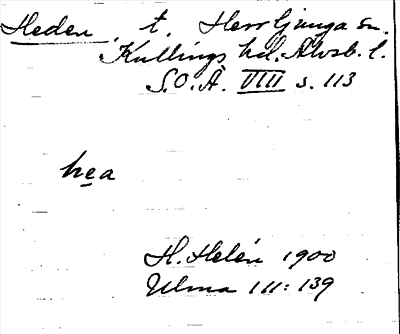 Heden, t. Herrljunga sn.
Kullings hd. Älvsb. l.
S.O.Ä. VIII s. 113
hea
H. Helén 1900
Ulma 111: 139